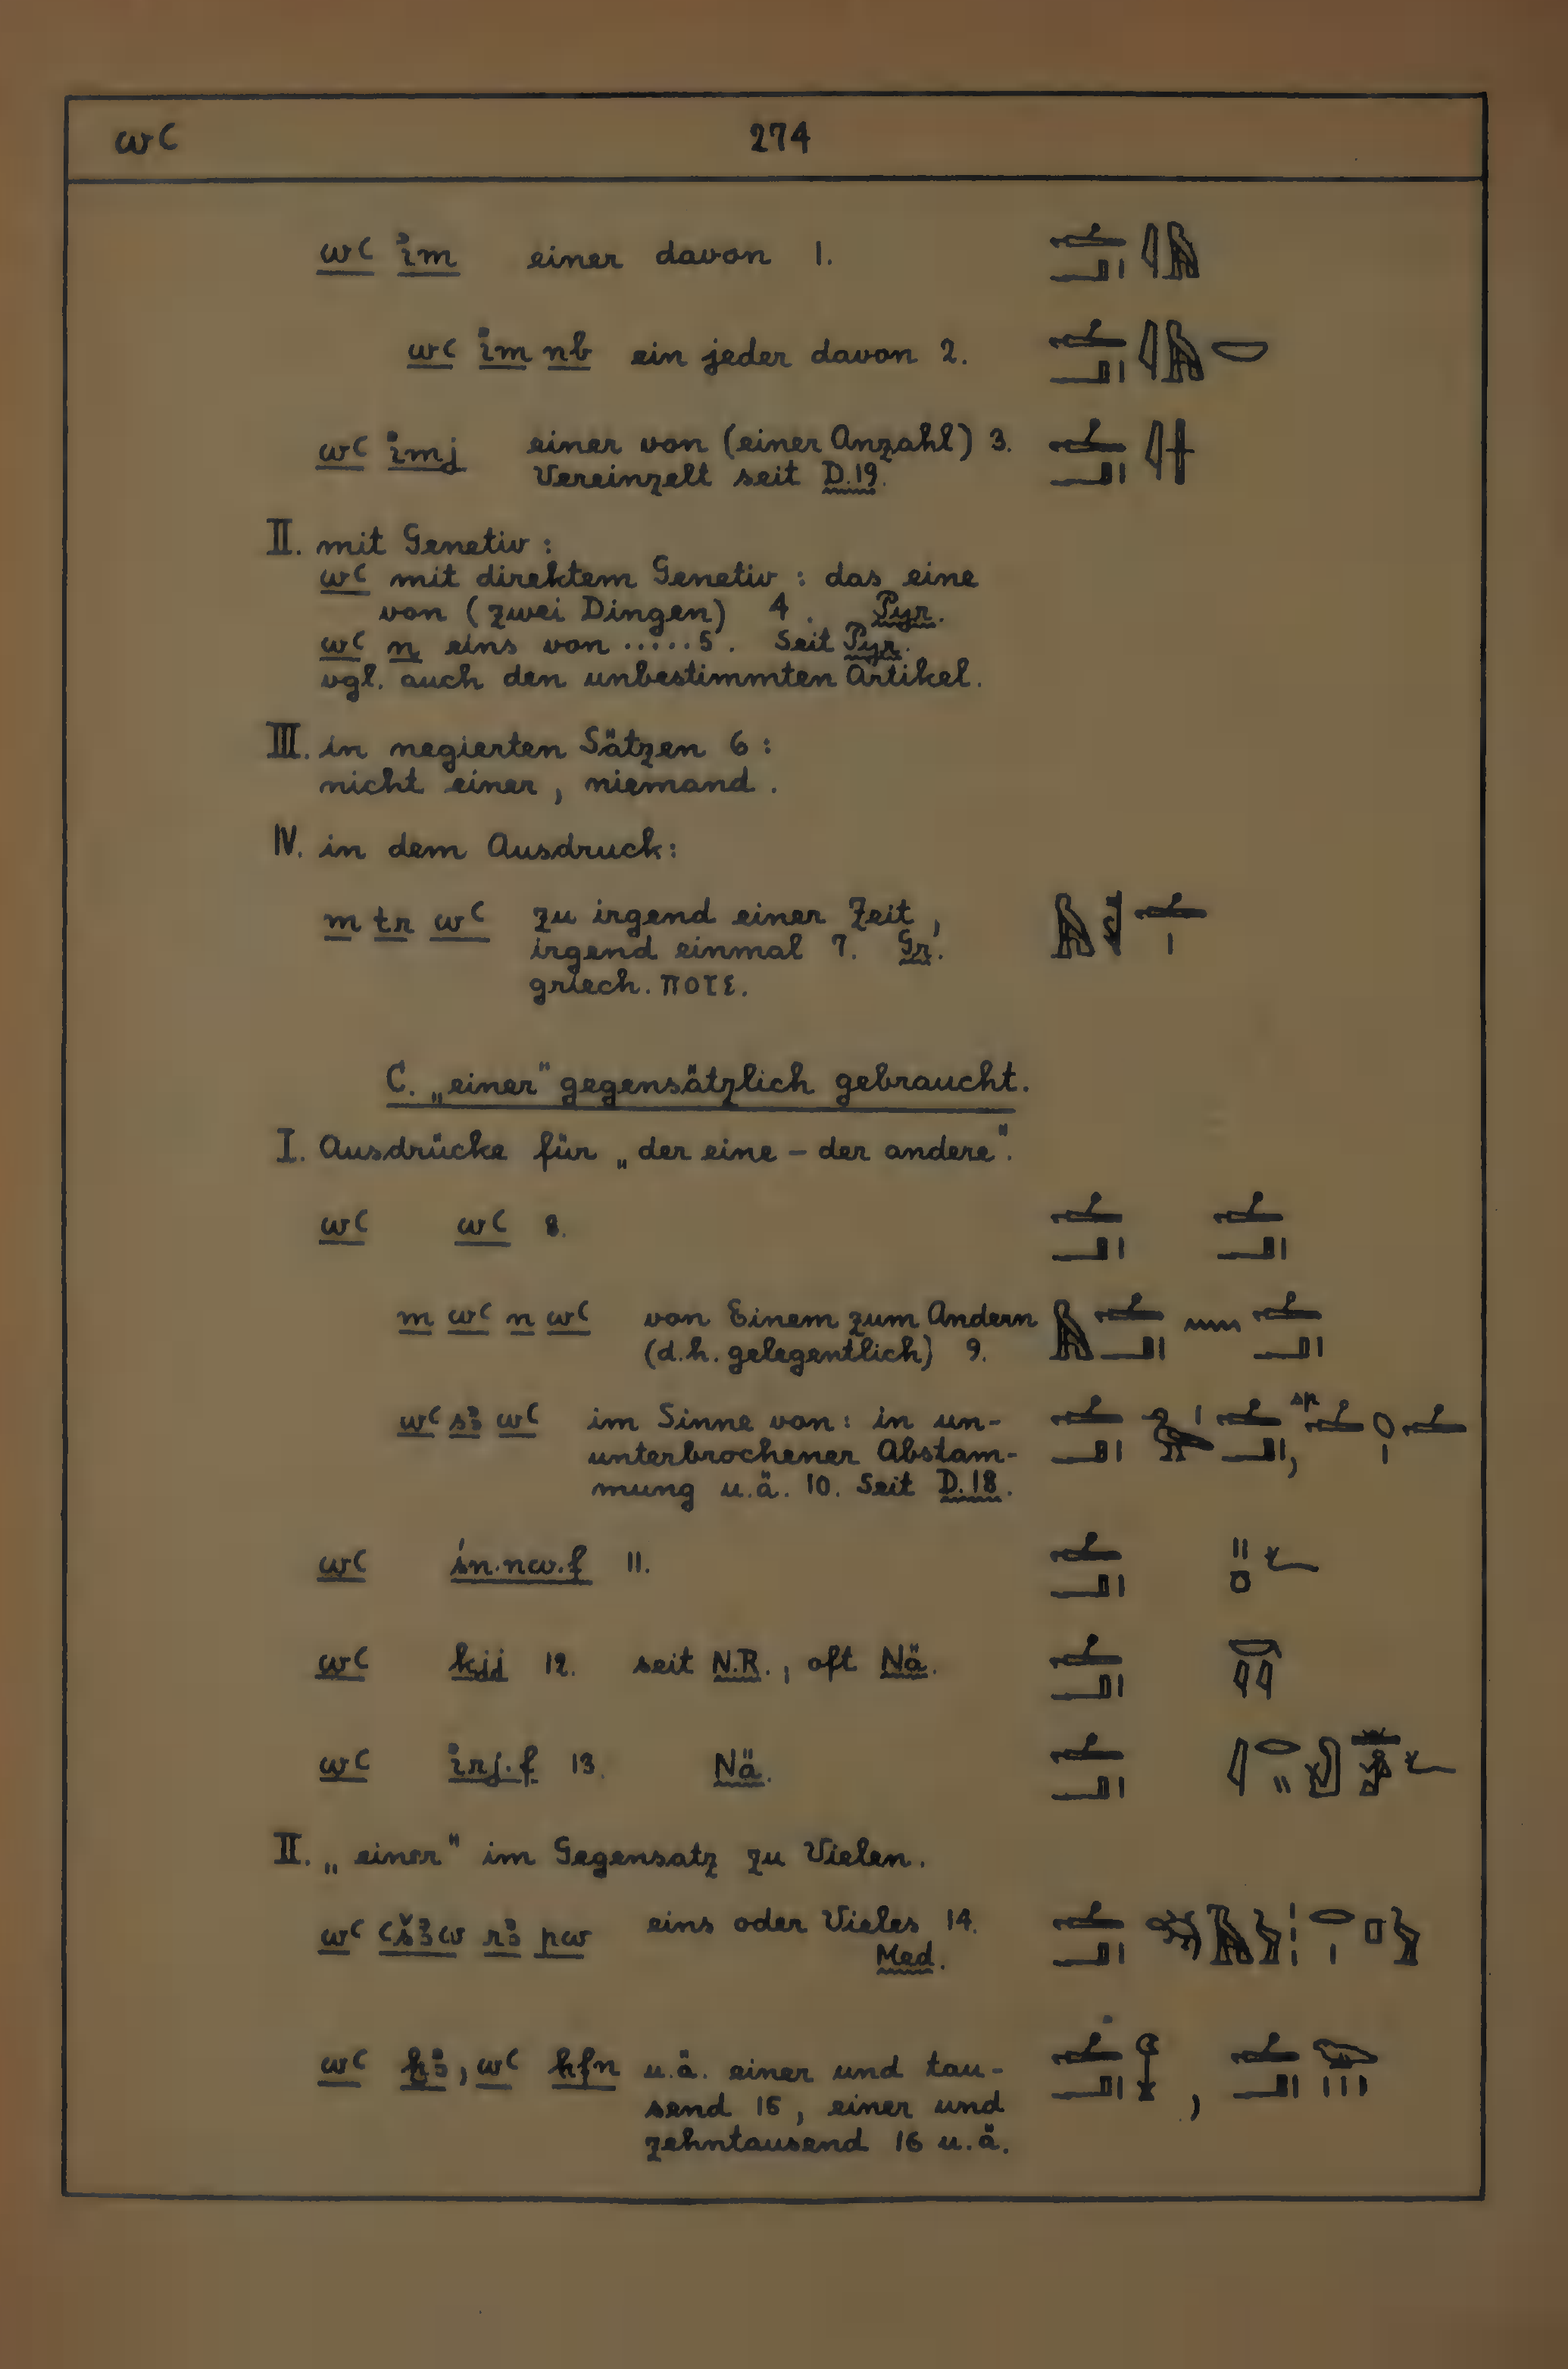 wꜥ 274
wꜥ i̓m einer davon 1. 𓌡𓂝𓏤𓇋𓅓
wꜥ i̓m nb ein jeder davon 2. 𓌡𓂝𓏤𓇋𓅓𓎟
wꜥ i̓mj einer von (einer Anzahl) 3. 𓌡𓂝𓏤𓇋𓏶
Vereinzelt seit D.19.
II. mit Genetiv :
wꜥ mit direktem Genetiv : das eine
von (zwei Dingen) 4. Pyr.
wꜥ n eins von ..... 5. Seit Pyr.
vgl. auch den unbestimmten Artikel.
III. in negierten Sätzen 6 :
nicht einer, niemand.
IV. in dem Ausdruck:
m tr wꜥ zu irgend einer Zeit,
irgend einmal 7. Gr.
griech. ποτε.
C. „einer" gegensätzlich gebraucht.
I. Ausdrücke für „der eine – der andere".
wꜥ wꜥ 8. 𓌡𓂝𓏤 𓌡𓂝𓏤
m wꜥ n wꜥ von Einem zum Andern 𓅓𓌡𓂝𓏤𓈖𓌡𓂝𓏤
(d.h. gelegentlich) 9.
wꜥ sꜣ wꜥ im Sinne von: in un- 𓌡𓂝𓏤𓅭𓏤𓌡𓂝𓏤, sp 𓌡𓆇𓏤𓌡
unterbrochener Abstam-
mung u.ä. 10. Seit D.18.
wꜥ ś̱n.nw.f 11. 𓌡𓂝𓏤 𓏻𓏌𓆑
wꜥ kjj 12. seit N.R., oft Nä. 𓌡𓂝𓏤 𓎡𓇋𓇋
wꜥ i̓rj.f 13. Nä. 𓌡𓂝𓏤
II. „einer" im Gegensatz zu Vielen.
wꜥ ꜥšꜣw rꜣ pw eins oder Vieles 14. 𓌡𓂝𓏤𓆈𓅓𓅱𓏥𓂋𓏤𓊪𓅱
Med.
wꜥ ḫꜣ, wꜥ ḥfn u.ä. einer und tau- 𓌡𓂝𓏤𓆼, 𓌡𓂝𓏤𓆐𓏥
send 15, einer und
zehntausend 16 u.ä.